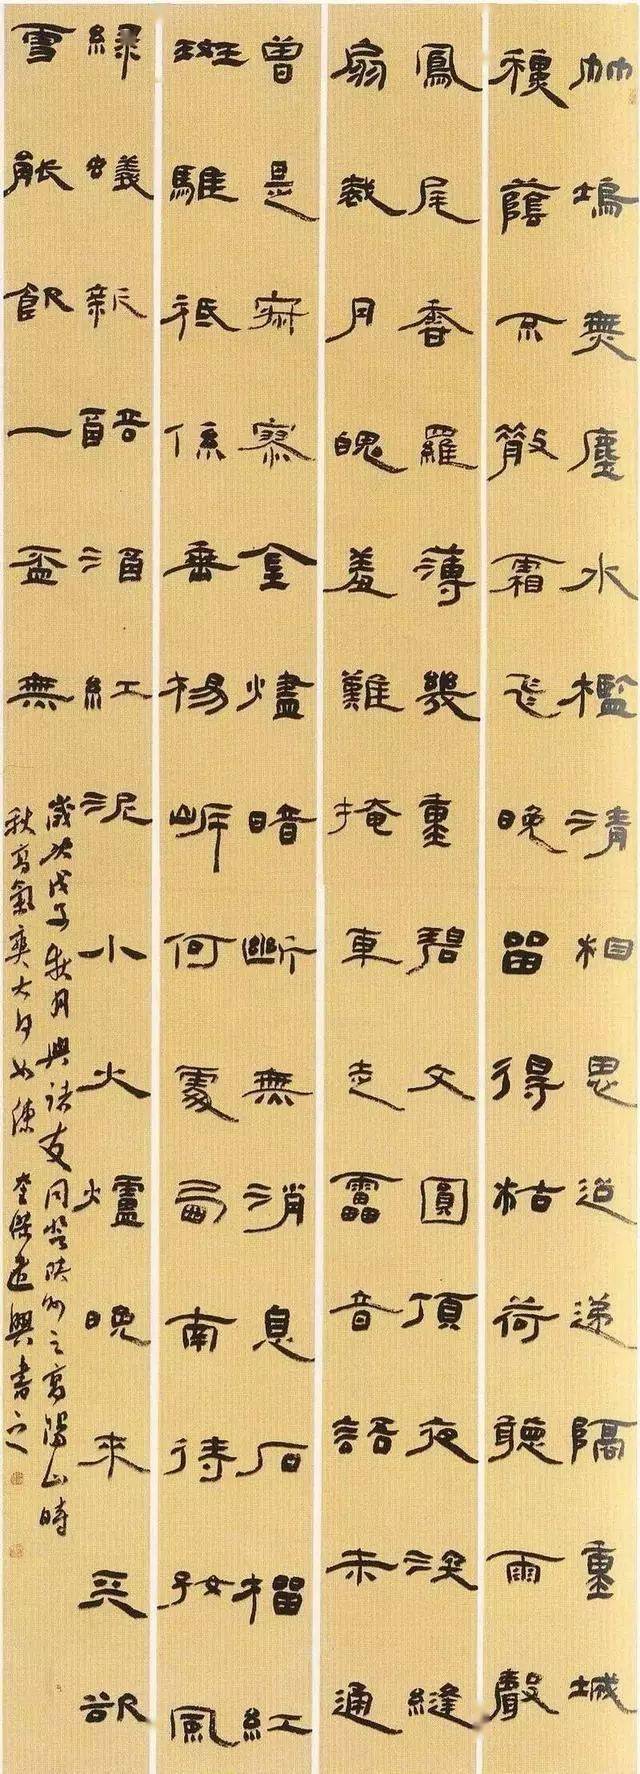 竹塢無塵水檻清相思迢遞隔重城
穐蔭不散霜飛晚留得枯荷聽雨聲
鳳尾香羅薄幾重碧文圓頂夜深縫
扇裁月魄羞難掩車走靁音語未通
曾是寂寥金燼暗斷無消息石榴紅
斑騅秪係垂楊岸何處西南待好風
綠蟻新醅酒紅泥小火爐晚來天欲
雪能飲一盃無
歲次戊子秋月與諸友同登陝州之高陽山時
秋高氣爽大遣興書之